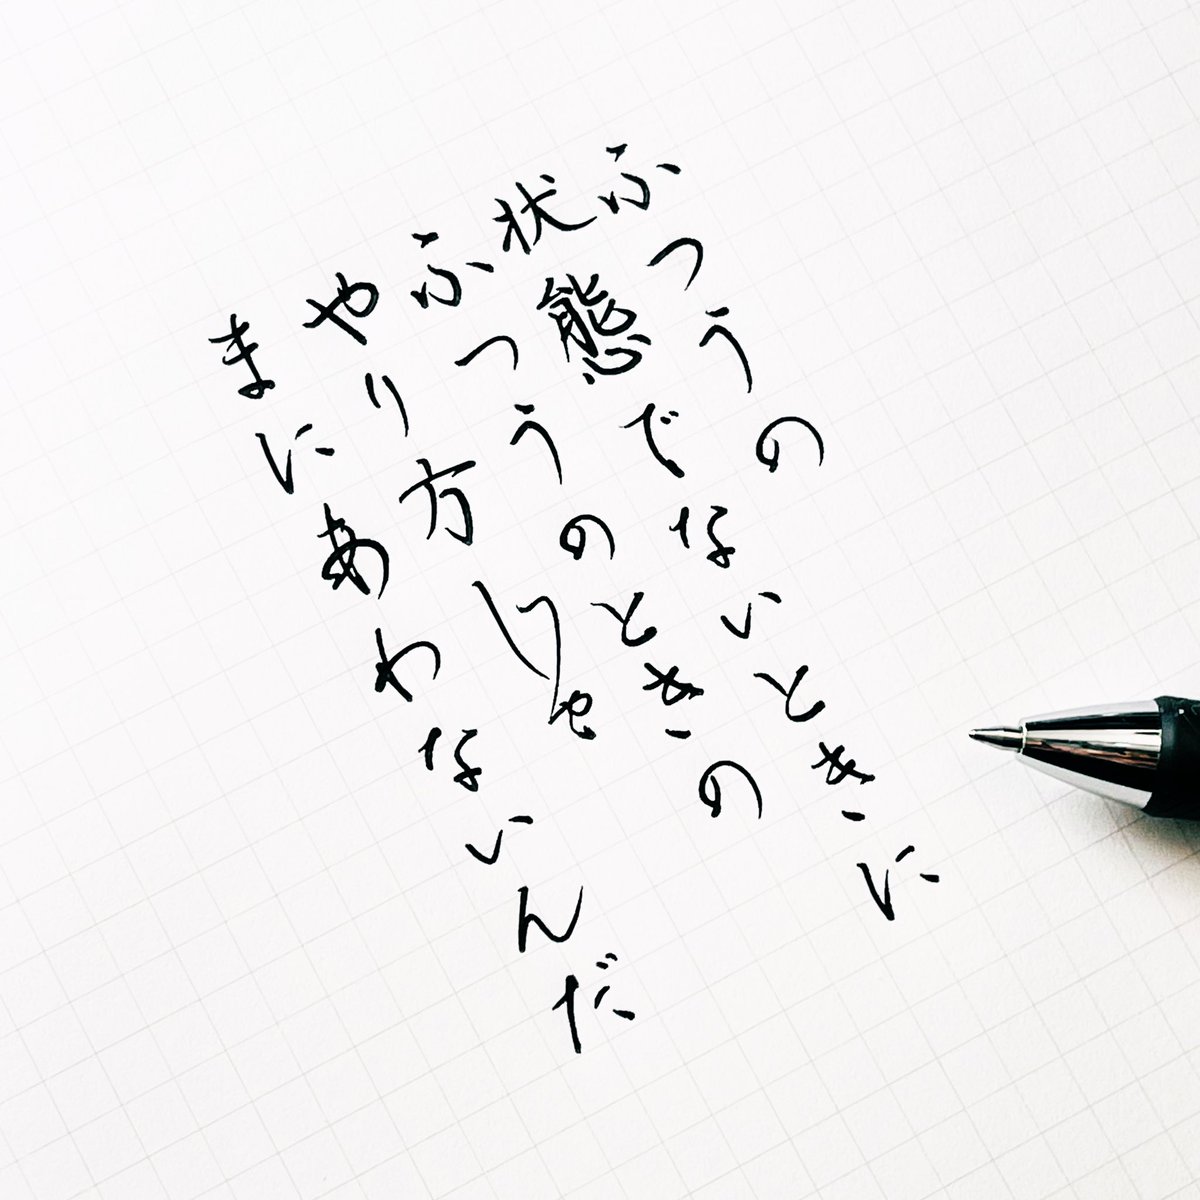 ふつうの
状態でないときに
ふつうのときの
やり方じゃ
まにあわないんだ